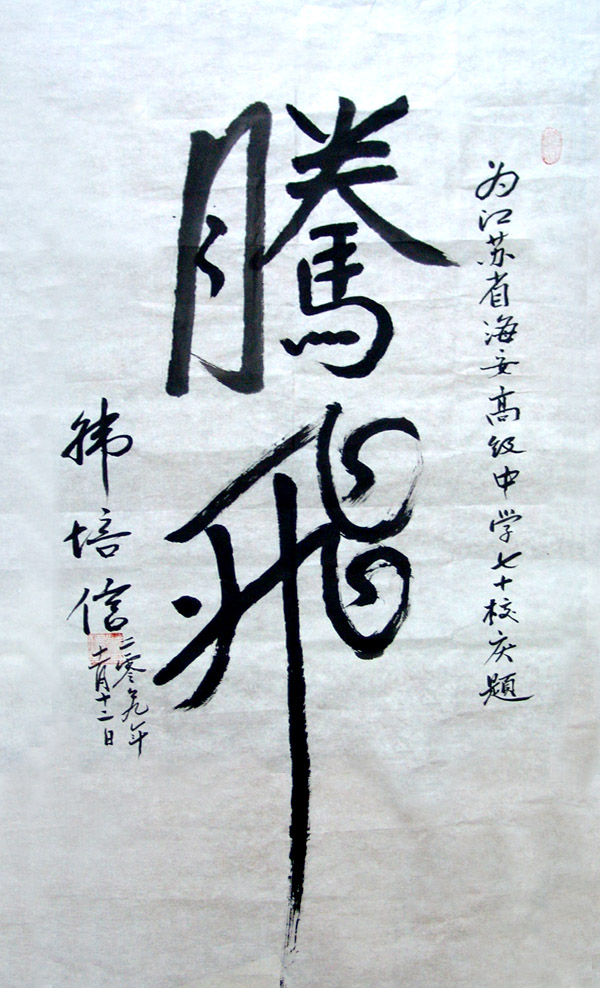 为江苏省海安高级中学七十校庆题
騰飛
韩培信
二零零九年
十一月十二日